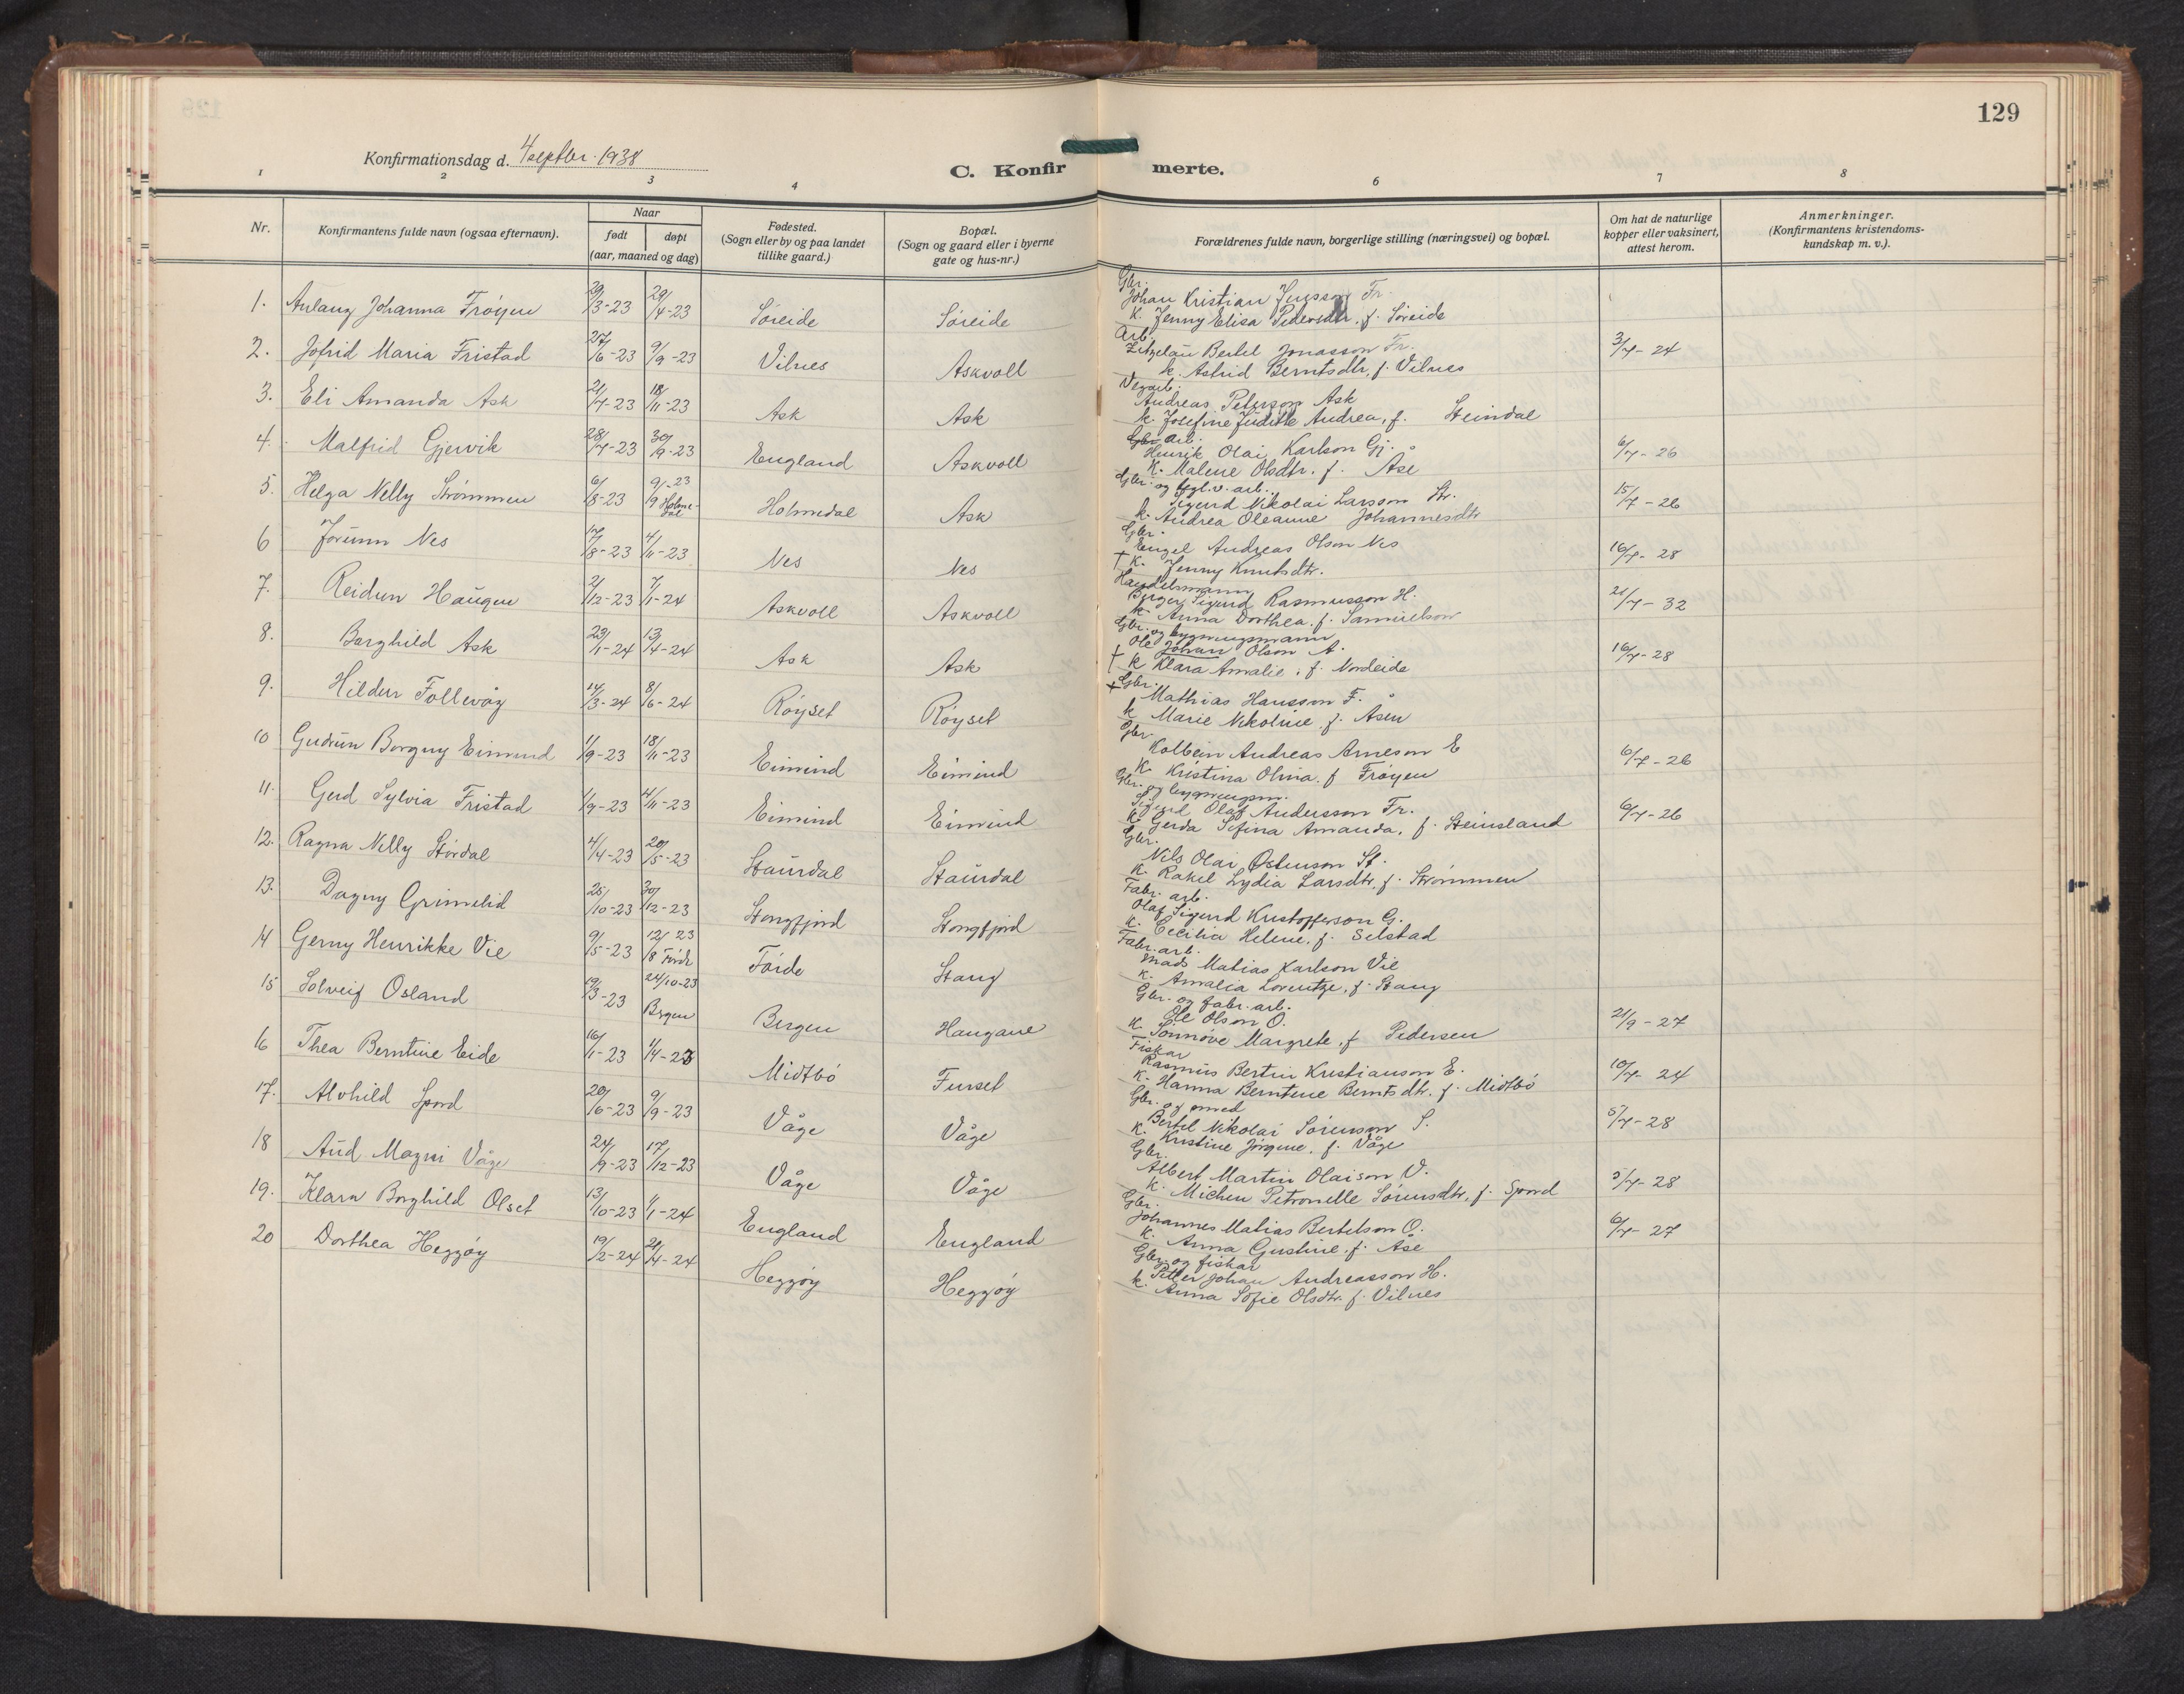 129
Konfirmationsdag d. 4 septbr. 1938
C. Konfirmerte.
1 2 3 4 6 7 8
Nr.
Konfirmantens fulde navn (ogsaa efternavn).
Naar
født
døpt
(aar, maaned og dag)
Fødested.
(Sogn eller by og paa landet
tillike gaard.)
Bopæl.
(Sogn og gaard eller i byerne
gate og hus-nr.)
Forældrenes fulde navn, borgerlige stilling (næringsvei) og bopæl.
Om hat de naturlige
kopper eller vaksinert,
attest herom.
Anmerkninger.
(Konfirmantens kristendoms-
kundskap m. v.).
1. Aslaug Johanna Frøyen 29/3-23 29/4-23 Søreide Søreide
Gbr.
Johan Kristian Jensson Fr.
K. Jenny Elisa Pedersdtr. f. Søreide
2. Jofrid Maria Fristad 27/6-23 9/9-23 Vilnes Askvoll
Arb.
Bertel Jonasson Fr. 3/7-24
k. Astrid Berntsdtr, f. Vilnes
3. Eli Amanda Ask 21/7-23 18/11-23 Ask Ask
Vegarb.
Andreas Peterson Ask
k. Josefine Judithe Andrea, f. Steindal
4. Malfrid Gjervik 28/7-23 30/9-23 England Askvoll
Gbr. arb.
Henrik Olai Karlson Gj. 6/7-26
K. Malene Olsdtr. f. Åse
5. Helga Nelly Strømmen 6/8-23 9/9-23 Holmedal Holmedal Ask
Gbr. og tfgl.v. arb.
Sigurd Nikolai Larsson Str. 15/7-26
k. Andrea Oleanne Johannesdtr
6 Jorunn Nes 17/8-23 4/11-23 Nes Nes
Gbr.
Engel Andreas Olson Nes 16/7-28
+ K. Jenny Knutsdtr.
7. Reidun Haugen 2/12-23 7/1-24 Askvoll Askvoll
Handelsmann
Birger Sigurd Rasmusson H. 21/7-32
k. Anna Dorthea. f. Samuelson
8. Borghild Ask 23/1-24 13/4-24 Ask Ask
Gbr. og bygningsmann
Ole Johan Olson A. 16/7-28
+ k Klara Amalie, f. Nordeide
9. Hildur Follevåg 14/3-24 8/6-24 Røyset Røyset
+ Gbr.
Mathias Hansson F.
k Marie Nikoline, f. Åsen
10 Gudrun Borgny Eimind 1/9-23 18/11-23 Eimind Eimind
Gbr
Kolbein Andreas Arneson E 6/7-26
K. Kristina Olina. f Frøyen
11. Gerd Sylvia Fristad 1/9-23 4/11-23 Eimind Eimind
Gbr. og bygningsm.
Sigurd Olaf Andersson Fr. 6/7-26
K. Gerda Sefina Amanda, f. Steinsland
12. Ragna Nelly Stordal 4/4-23 20/5-23 Staurdal Staurdal
Gbr.
Nils Olai Østenson St.
K. Rakel Lydia Larsdtr, f. Strømmen
13. Dagny Grimelid 25/10-23 30/12-23 Stongfjord Stongfjord
Fabr. arb.
Olaf Sigurd Kristofferson G.
k. Cecilia Helene. f. Selstad
14 Gerny Henrikke Vie 9/5-23 12/8 23 Førde Førde Stang
Fabr. arb.
Mads Matias Karlson Vie
k. Amalia Lorentze, f. Stang
15 Solveig Osland 19/3-23 24/10-23 Bergen Bergen Haugane
Gbr. og fabr. arb.
Ole Olson O. 21/9-27
K. Sønnøve Margrete, f Pedersen
16 Thea Berntine Eide 16/1-23 1/4-23 Midtbø Furset
Fiskar
Rasmus Bertin Kristianson E. 10/7-24
K. Hanna Berntene Berntsdtr. f. Midtbø
17. Alvhild Spord 20/6-23 9/9-23 Våge Våge
Gbr. og smed
Bertel Nikolai Sørenson S. 5/7-28
K. Kristine Jørgine, f. Våge
18 Aud Magni Våge 24/9-23 17/12-23 Våge Våge
Gbr.
Albert Martin Olaison V. 5/7-28
K. Michen Petronelle Sørensdtr, f. Spord
19. Klara Borghild Olset 13/10-23 1/1-24 England England
Gbr.
Johannes Matias Bertelson O. 6/7-27
K. Anna Gustine, f. Åse
20 Dorthea Heggøy 19/2-24 21/4-24 Heggøy Heggøy
Gbr. og fiskar
Petter Johan Andreasson H.
k. Anna Sofie Olsdtr. f. Vilnes